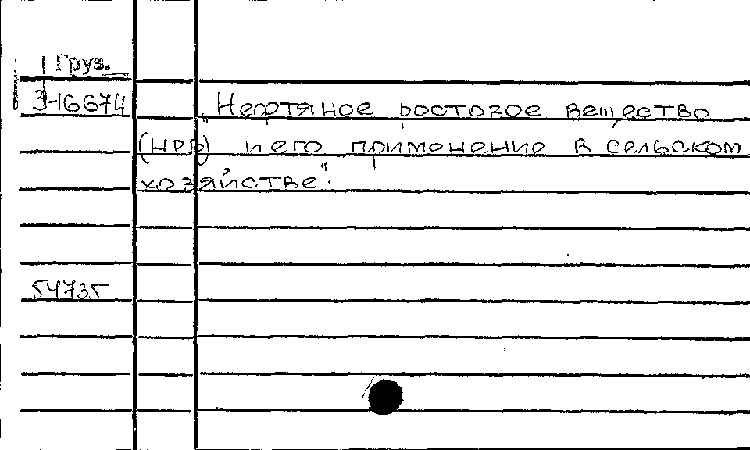 Груз.
3-16674 „Нефтяное ростовое вещество
(НРВ) и его применение в сельском
хозяйстве".
54735